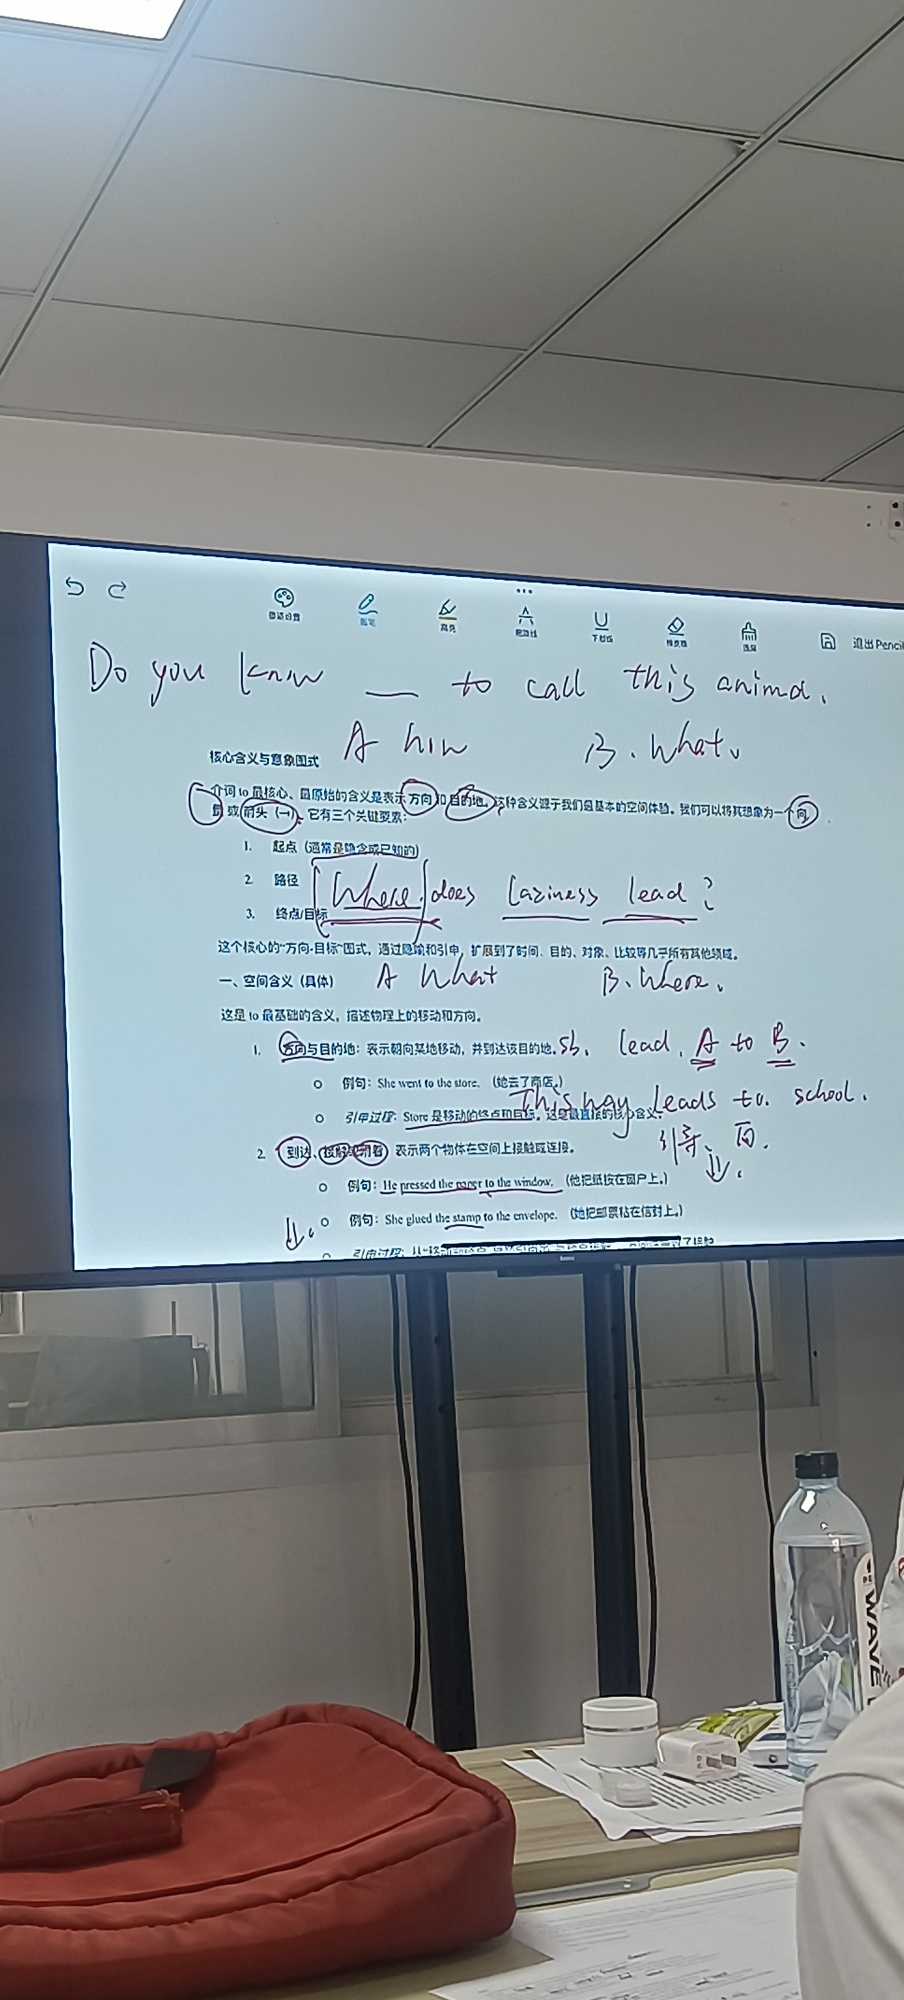 画笔
高亮
下划线
橡皮擦
退出 Pencil
Do you know __ to call this animal.
A how B. What.
核心含义与意象图式
介词 to 最核心、最原始的含义是表示方向和目的地。这种含义源于我们最基本的空间体验。我们可以将其想象为一个向
量或箭头（→），它有三个关键要素：
1. 起点（通常是隐含或已知的）
2. 路径
Where does laziness lead?
3. 终点/目标
这个核心的“方向-目标”图式，通过隐喻和引申，扩展到了时间、目的、对象、比较等几乎所有其他领域。
A What B. Where.
一、空间含义（具体）
这是 to 最基础的含义，描述物理上的移动和方向。
1. 方向与目的地：表示朝向某地移动，并到达该目的地。
sb. lead. A to B.
○ 例句：She went to the store.（她去了商店。）
This way leads to. school.
○ 引申过程：Store 是移动的终点和目标。这是最直接的核心含义。
引导、向.
2. 到达、接触或附着：表示两个物体在空间上接触或连接。
○ 例句：He pressed the paper to the window.（他把纸按在窗户上。）
○ 例句：She glued the stamp to the envelope.（她把邮票粘在信封上。）
引申过程：从“移
WAVE